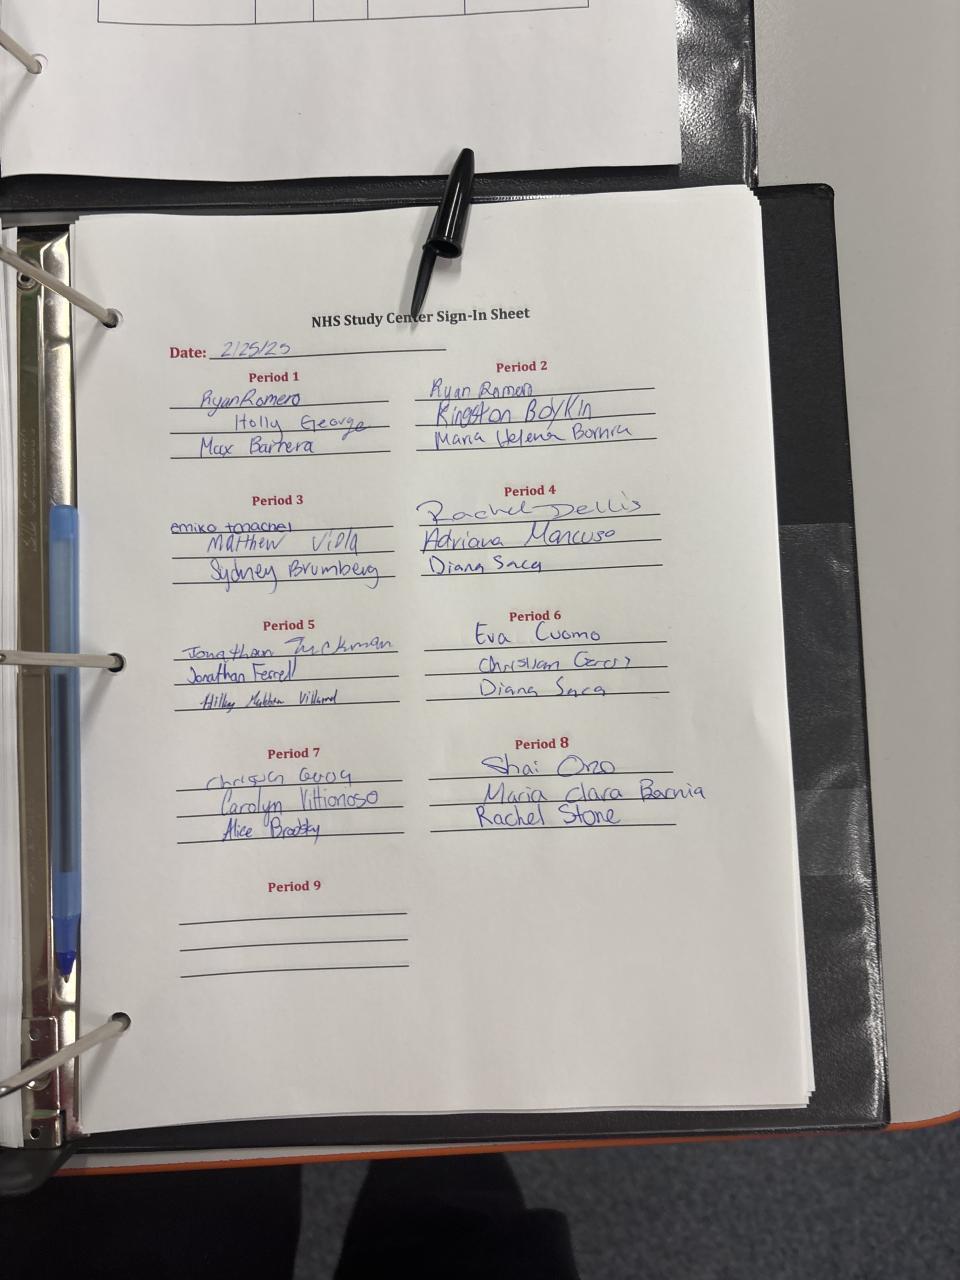 NHS Study Center Sign-In Sheet
Date: 2/25/25
Period 1
Ryan Romero
Holly George
Max Barrera
Period 2
Ryan Romero
Kingston Boykin
Maria Helena
Period 3
emiko
Matthew Viola
Sydney Brumberg
Period 4
Rachel Dellis
Adriana Mancuso
Diana Saca
Period 5
Jonathan Tuckman
Jonathan Ferrell
Period 6
Eva Cuomo
Christian
Diana Saca
Period 7
Carolyn
Alice Brodsky
Period 8
Shai
Maria Clara Barnia
Rachel Stone
Period 9